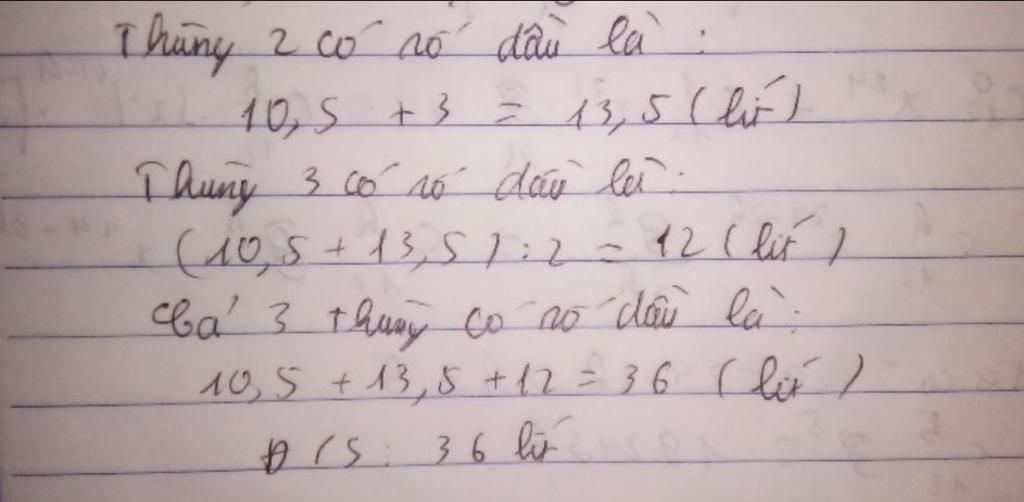 Thùng 2 có số dầu là :
10,5 + 3 = 13,5 (lít)
Thùng 3 có số dầu là :
(10,5 + 13,5) : 2 = 12 (lít)
Cả 3 thùng có số dầu là :
10,5 + 13,5 + 12 = 36 (lít)
Đ/S : 36 lít